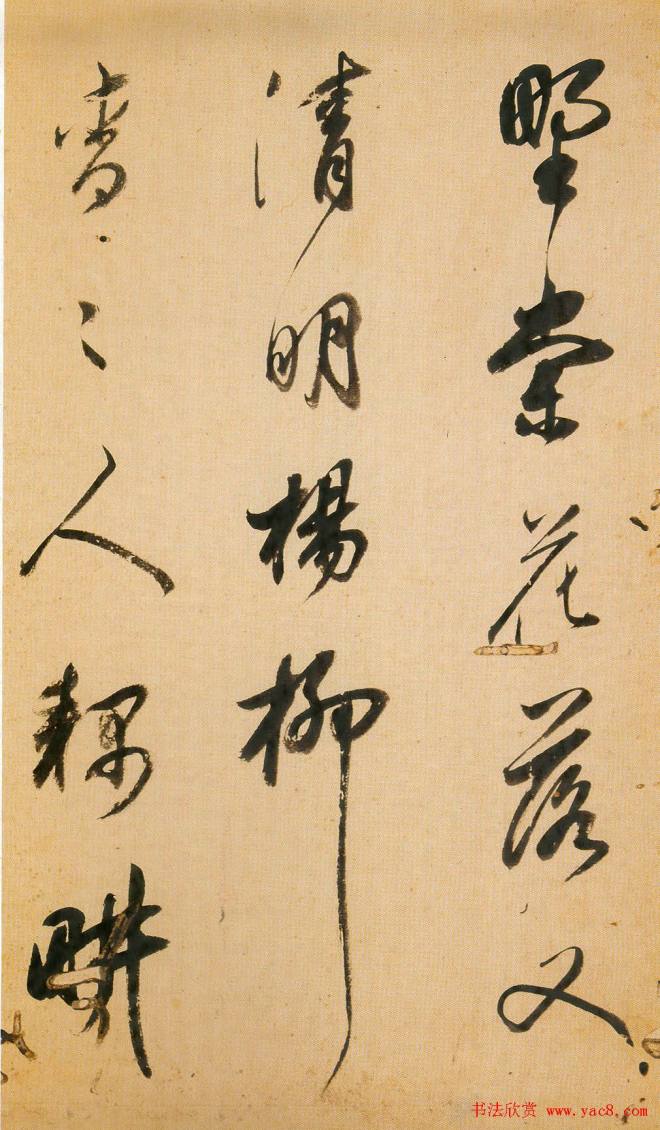 野棠花落又
清明楊柳
青〻人耦畊
书法欣赏 www.yac8.com